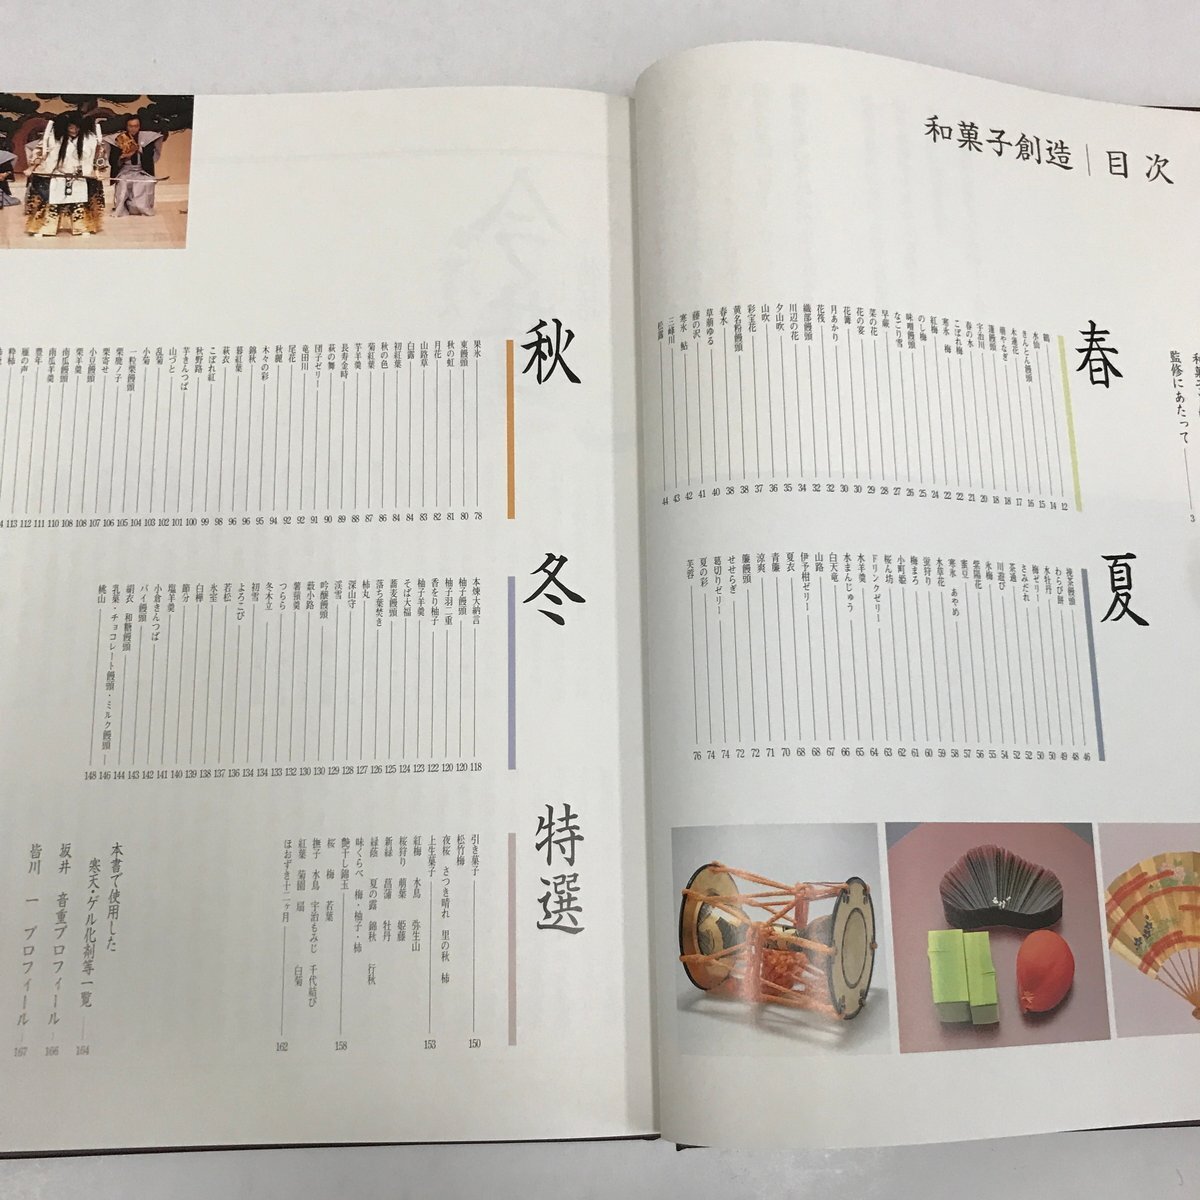 和菓子創造|目次
監修にあたって 3
春
鶴 12
水仙 14
きんとん饅頭 15
木蓮花 16
萌やなぎ 17
蓮饅頭 18
宇治川 18
春の水 20
こぼれ梅 21
寒氷 梅 22
紅梅 22
のし梅 24
味噌饅頭 25
なごり雪 26
早蕨 27
菜の花 28
花の宴 29
花篝 30
月あかり 30
花筏 32
織部饅頭 32
川辺の花 34
夕山吹 35
山吹 36
彩宝花 37
黄名粉饅頭 38
春水 38
草萠ゆる 40
藤の沢 41
寒氷 鮎 42
三峰川 43
松露 44
夏
挽茶饅頭 46
わらび餅 48
水牡丹 49
梅ゼリー 50
さみだれ 50
茶通 52
川遊び 52
氷梅 54
紫陽花 55
蜜豆 56
寒氷 あやめ 57
水草花 58
蛍狩り 59
梅まろ 60
小町姫 61
桜ん坊 62
ドリンクゼリー 63
水羊羹 64
水まんじゅう 65
白天竜 66
山路 67
伊予柑ゼリー 68
夏衣 68
青簾 70
涼爽 71
簾饅頭 72
せせらぎ 72
葛切りゼリー 74
夏の彩 74
芙蓉 76
秋
果氷 78
東饅頭 80
秋の虹 81
月花 82
山路草 83
白露 84
初紅葉 84
秋の色 86
菊紅葉 87
芋羊羹 88
長寿金時 89
萩の舞 90
団子ゼリー 91
竜田川 92
尾花 92
秋麗 94
木々の彩 95
錦秋 96
暮紅葉 96
萩衣 98
こぼれ紅 99
秋野路 100
芋きんつば 101
山づと 102
乱菊 103
小菊 104
一粒栗饅頭 105
栗鹿ノ子 106
栗寄せ 107
小豆饅頭 108
栗羊羹 108
南瓜饅頭 110
南瓜羊羹 111
豊年 112
雁の声 113
粋柿
冬
本煉大納言 118
柚子饅頭 120
柚子羽二重 120
香をり柚子 122
柚子羊羹 123
そば大福 124
蕎麦饅頭 125
落ち葉焚き 126
柿丸 127
深山守 128
渓雪 129
吟醸饅頭 130
蕗小路 130
薯蕷羹 132
つらら 133
冬木立 134
初雪 134
よろこび 136
若松 137
氷室 138
白樺 139
節分 140
塩羊羹 141
小倉きんつば 142
パイ饅頭 143
胡衣 和糖饅頭 144
乳菓・チョコレート饅頭・ミルク饅頭 146
桃山 148
特選
引き菓子 150
松竹梅
夜桜 さつき晴れ 里の秋 柿
上生菓子 153
紅梅 水鳥 弥生山
桜狩り 萌葉 姫藤
新緑 菖蒲 牡丹
緑蔭 夏の露 錦秋 行秋
味くらべ 梅・柚子・柿
艶干し錦玉 158
桜 梅 若葉
撫子 水鳥 宇治もみじ 千代結び
紅葉 菊園 扇 白菊
ほおずき十二ヶ月 162
本書で使用した
寒天・ゲル化剤等一覧 164
坂井 音重プロフィール 166
皆川 一 プロフィール 167